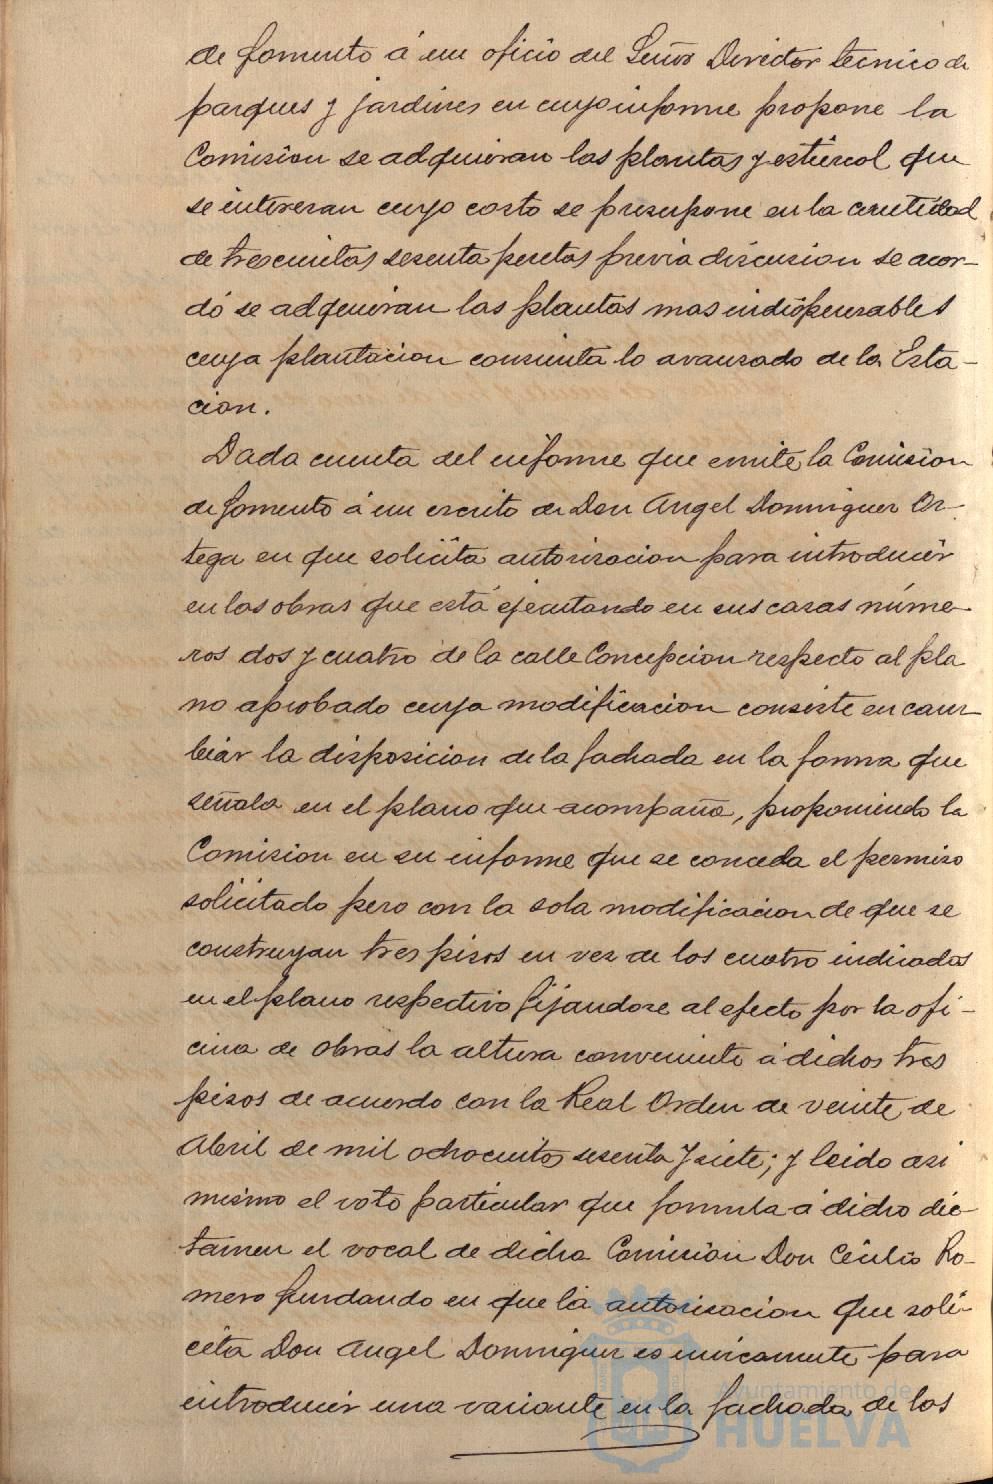 de fomento á un oficio del Señor Director tecnico de
parques y jardines en cuyo informe propone la
Comision se adquieran las plantas y estiercol que
se interesan cuyo costo se presupone en la cantidad
de trescientas sesenta pesetas previa discusion se acor-
dó se adquieran las plantas mas indispensables
cuya plantacion consienta lo avanzado de la Esta-
cion.
Dada cuenta del informe que emite la Comision
de fomento á un escrito de Don Angel Dominguez Or-
tega en que solicita autorisacion para introducir
en las obras que está ejecutando en sus casas núme-
ros dos y cuatro de la calle Concepcion respecto al pla
no aprobado cuya modificacion consiste en cam-
biar la disposicion de la fachada en la forma que
señala en el plano que acompaña, proponiendo la
Comision en su informe que se conceda el permiso
solicitado pero con la sola modificacion de que se
construyan tres pisos en vez de los cuatro indicados
en el plano respectivo fijandose al efecto por la ofi-
cina de obras la altura conveniente á dichos tres
pisos de acuerdo con la Real Orden de veinte de
Abril de mil ochocientos sesenta y siete; y leido asi
mismo el voto particular que formula á dicho dic-
tamen el vocal de dicha Comision Don Cecilio Ro-
mero fundando en que la autorisacion que soli-
cita Don Angel Dominguez es unicamente para
introducir una variante en la fachada de las
Ayuntamiento de
HUELVA